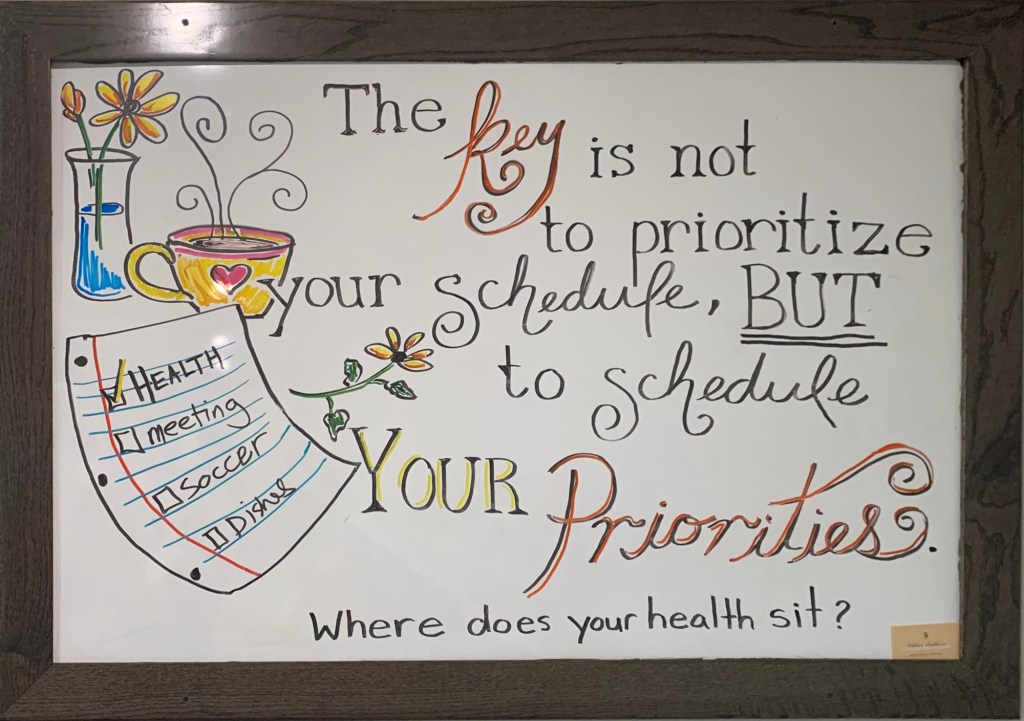 The key is not
to prioritize
your schedule, BUT
to schedule
YOUR Priorities.
Where does your health sit?
HEALTH
meeting
Soccer
Dishes